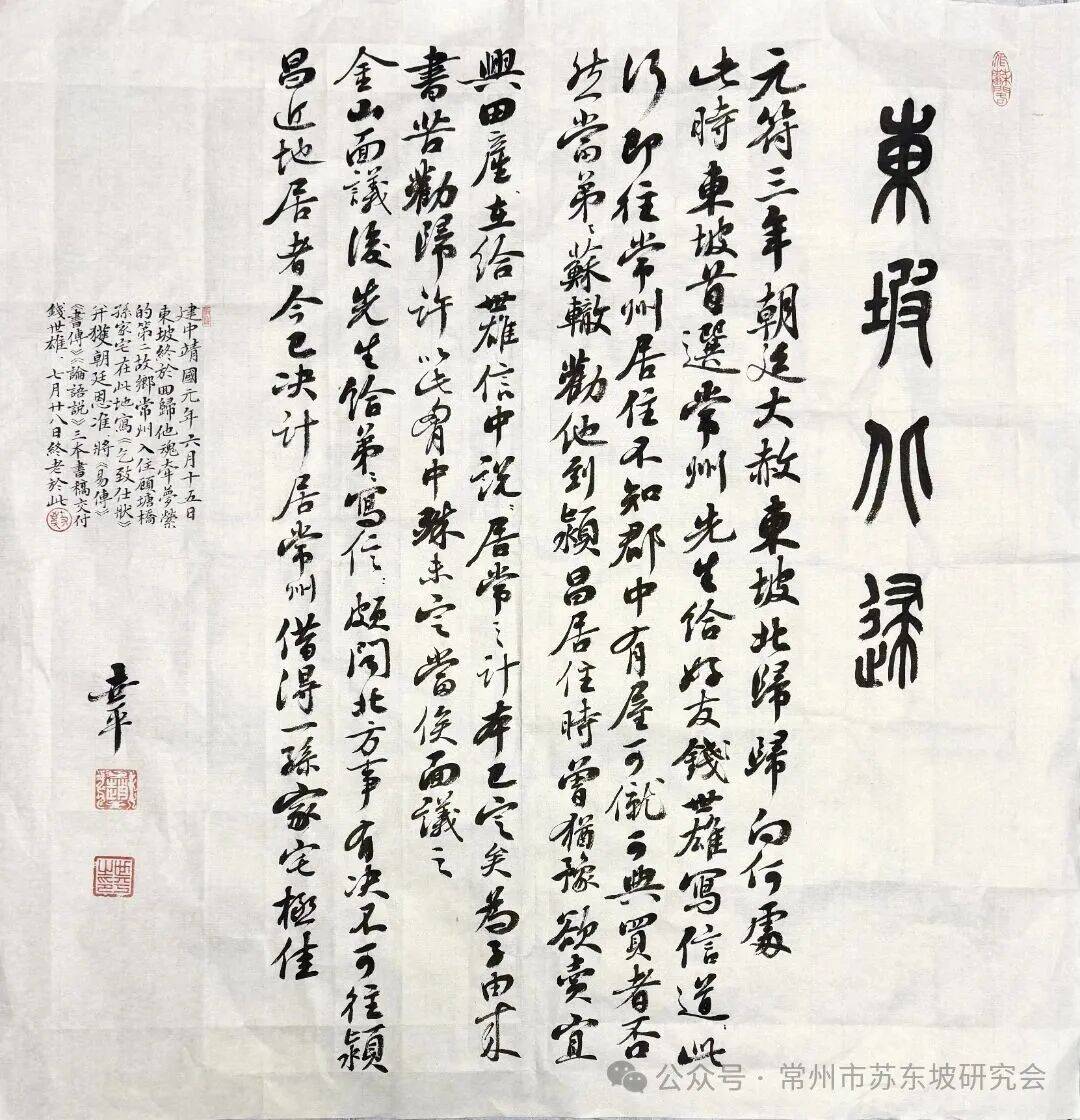 東坡北歸
元符三年朝廷大赦東坡北歸歸向何處
此時東坡首選常州先生給好友錢世雄寫信道:此
行即往常州居住不知郡中有屋可僦可典買者否
然當弟弟蘇轍勸他到潁昌居住時曾猶豫欲賣宜
興田產、在給世雄信中說:居常之計本已定矣為子由來
書苦勸歸許以此胸中殊未定當俟面議之
金山面議後先生給弟弟寫信:頗聞北方事有決不可往潁
昌近地居者今已決計居常州借得一孫家宅極佳
建中靖國元年六月十五日
東坡終於回歸他魂牽夢縈
的第二故鄉常州入住顧塘橋
孫家宅在此地寫《乞致仕狀》
并獲朝廷恩准將《易傳》
《書傳》《論語說》三本書稿交付
錢世雄、七月廿八日終老於此
世平
公众号·常州市苏东坡研究会